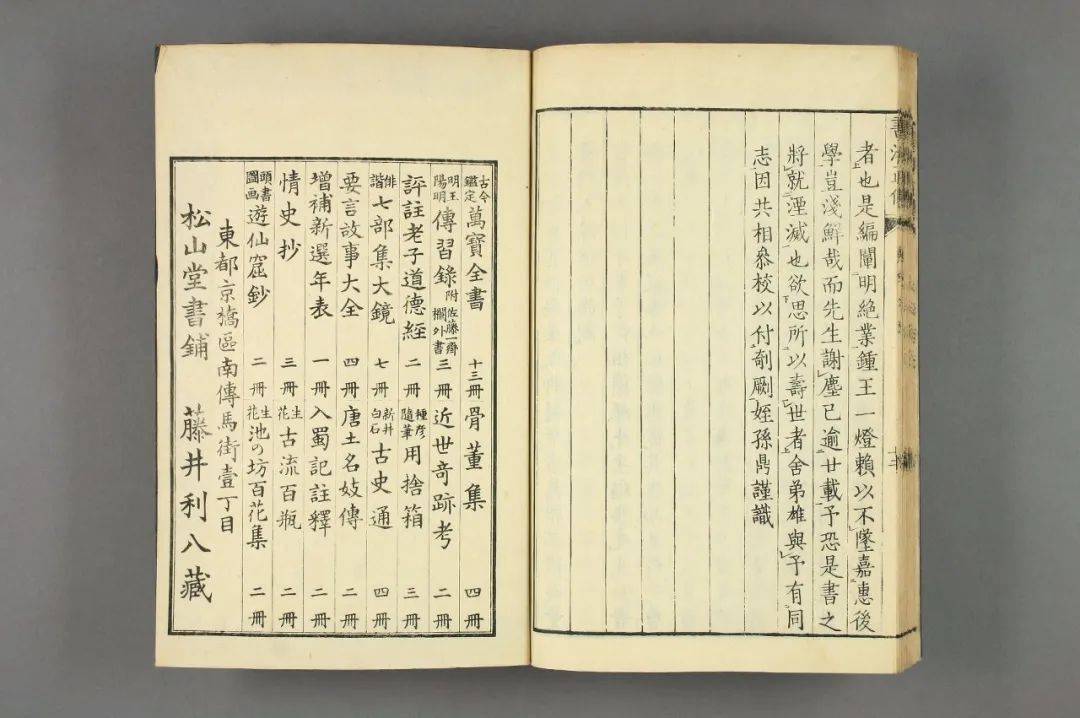 者也是編闡明絶業鍾王一燈賴以不墜嘉惠後
學豈淺鮮哉而先生謝塵已逾廿載予恐是書之
將就湮滅也欲思所以壽世者舍弟雄與予有同
志因共相叅校以付剞劂姪孫鼎謹識
古今鑑定 萬寶全書 十三冊 骨董集 四冊
明王陽明 傳習錄 附佐藤一齋欄外書 三冊 近世奇跡考 二冊
評註老子道德經 二冊 種彦隨筆 用捨箱 三冊
俳諧七部集大鏡 七冊 新井白石 古史通 四冊
要言故事大全 四冊 唐土名妓傳 二冊
增補新選年表 一冊 入蜀記註釋 二冊
情史抄 三冊 生花 古流百瓶 二冊
頭書圖画 遊仙窟鈔 二冊 生花 池の坊百花集 二冊
東都京橋區南傳馬街壹丁目
松山堂書鋪 藤井利八藏